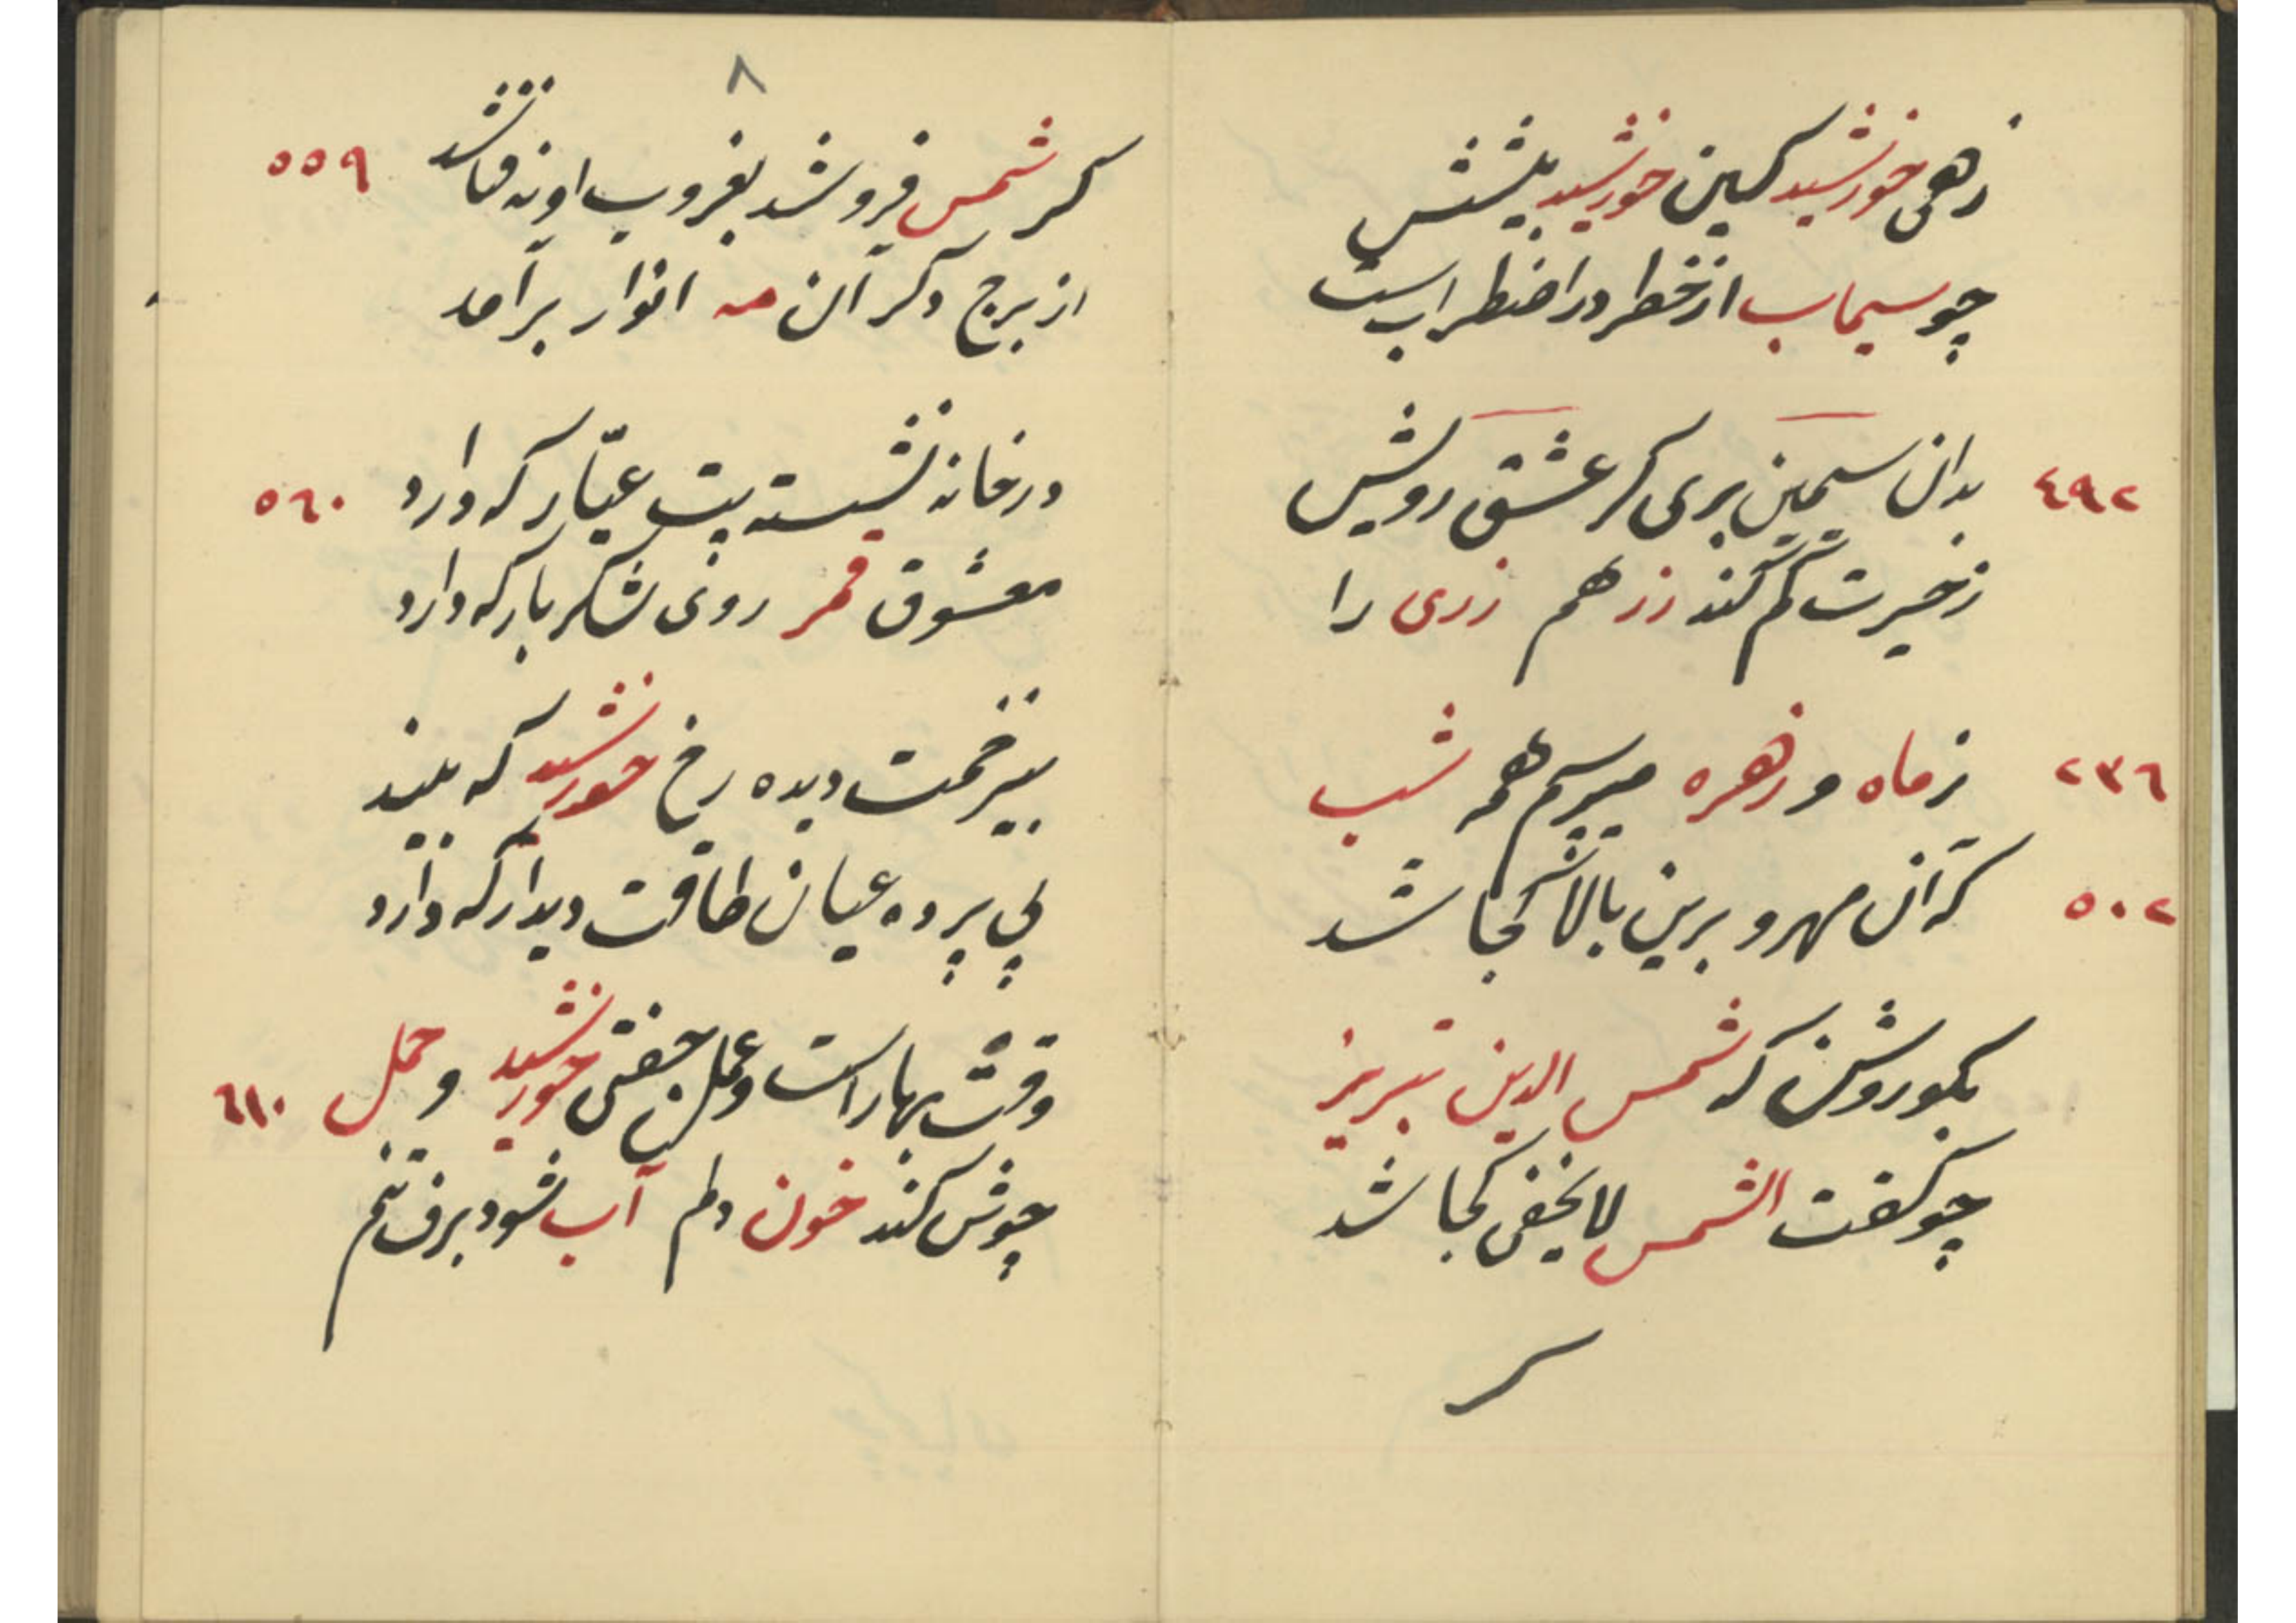 زهی خورشید کین خورشید پیشش
چو سیماب از خطر در اضطراب است
٤٩٢ بدان سیمین بری کز عشق رویش
ز حیرت گم کند زر هم زری را
٢٣٦ ز ماه و زهره میپرسم همه شب
٥٠٢ که آن مهرو برین بالا کجا شد
بگو روشن که شمس الدین تبریز
چو گفت الشمس لا یخفی کجا شد
٨
گر شمس فرو شد بغروب او نه فنا شد ٥٥٩
از برج دگر آن مه انوار برآمد
در خانه نشسته بت عیّار که دارد ٥٦٠
معشوق قمر روی شکر بار که دارد
بی زخمت دیده رخ خورشید که بیند
بی پرده عیان طاقت دیدار که دارد
وقت بهار است و عمل جفتی خورشید و حمل ٦١٠
جوش کند خون دلم آب شود برف تنم